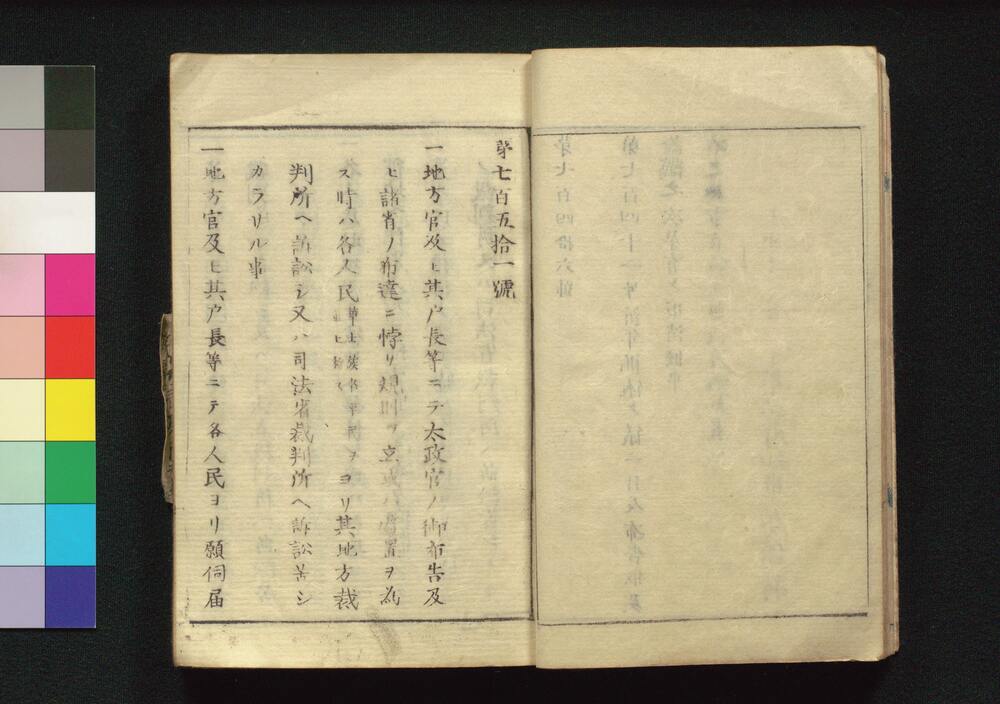 第七百五拾一號
一地方官及ヒ其户長等ニテ太政官ノ御布告及
ヒ諸省ノ布達ニ悖リ規則ヲ立或ハ處置ヲ為
ス時ハ各人民華士族卒平民ヲ併セヨリ其地方裁
判所ヘ訴訟シ又ハ司法省裁判所ヘ訴訟苦シ
カラサル事
一地方官及ヒ其户長等ニテ各人民ヨリ願伺届